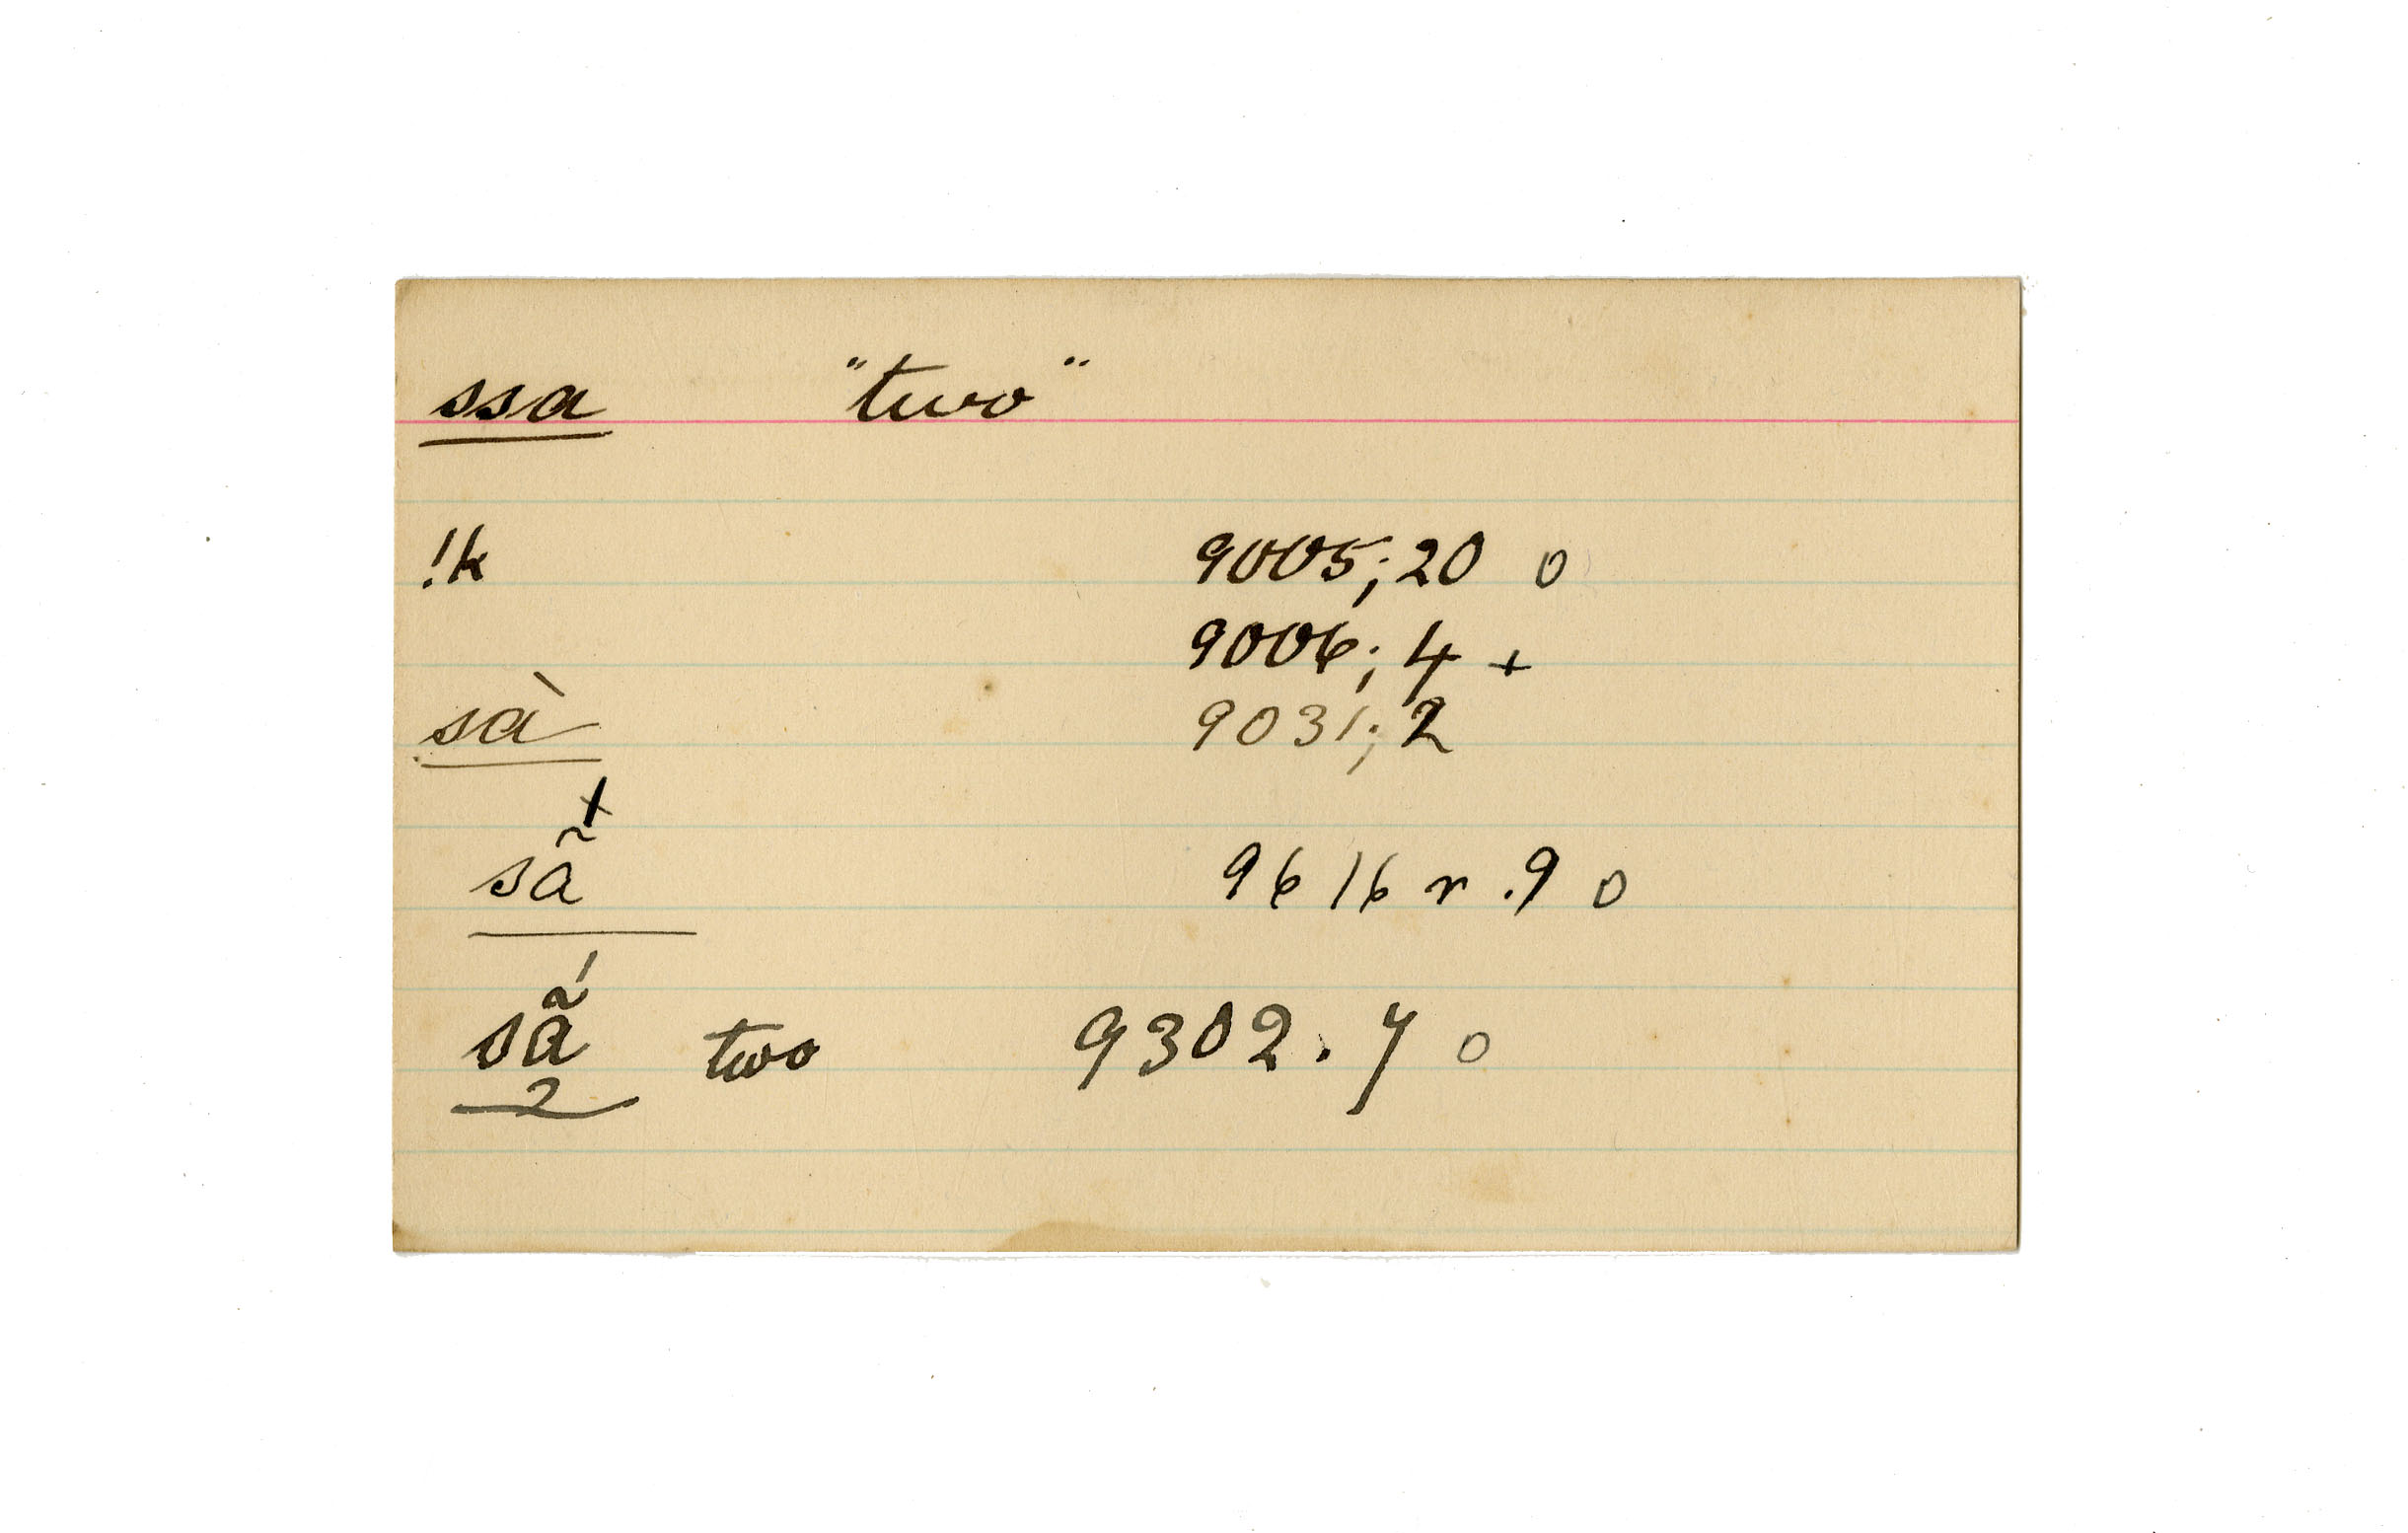 ssa "two"
!k 9005;20 o
9006; 4 +
sà 9031; 2
sã́ 9616 r .9 o
sã́ two 9302. 7 o
2